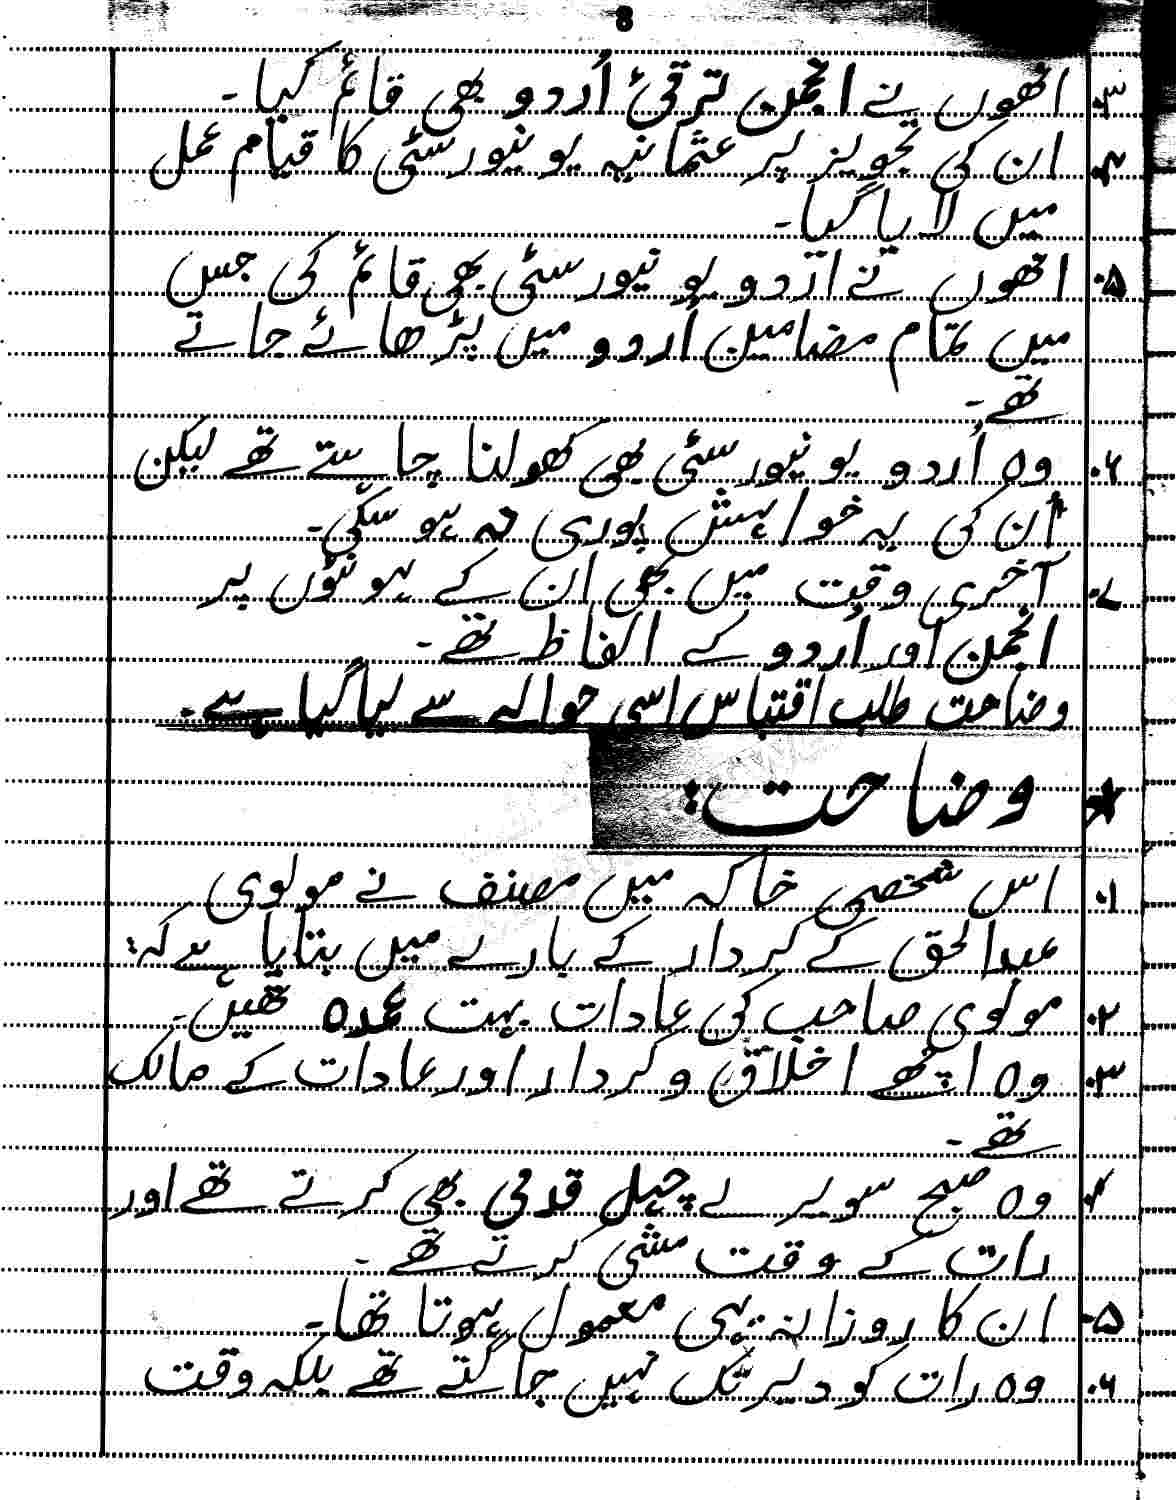 8
۳. انھوں نے انجمن ترقیٔ اُردو بھی قائم کیا۔
۴. ان کی تجویز پر عثمانیہ یونیورسٹی کا قیام عمل
میں لایا گیا۔
۵. انھوں نے اُردو یونیورسٹی بھی قائم کی جس
میں تمام مضامین اُردو میں پڑھائے جاتے
تھے۔
۶. وہ اُردو یونیورسٹی بھی کھولنا چاہتے تھے لیکن
اُن کی یہ خواہش پوری نہ ہو سکی۔
۷. آخری وقت میں بھی ان کے ہونٹوں پر
انجمن اور اُردو کے الفاظ تھے۔
وضاحت طلب اقتباس اسی حوالے سے لیا گیا ہے۔
وضاحت:
۱. اس شخصی خاکہ میں مصنف نے مولوی
عبدالحق کے کردار کے بارے میں بتایا ہے کہ:
۲. مولوی صاحب کی عادات بہت عمدہ تھیں۔
۳. وہ اچھے اخلاق و کردار اور عادات کے مالک
تھے۔
۴. وہ صبح سویرے چہل قدمی بھی کرتے تھے اور
رات کے وقت مشی کرتے تھے۔
۵. ان کا روزانہ یہی معمول ہوتا تھا۔
۶. وہ رات کو دیر تک نہیں جاگتے تھے بلکہ وقت